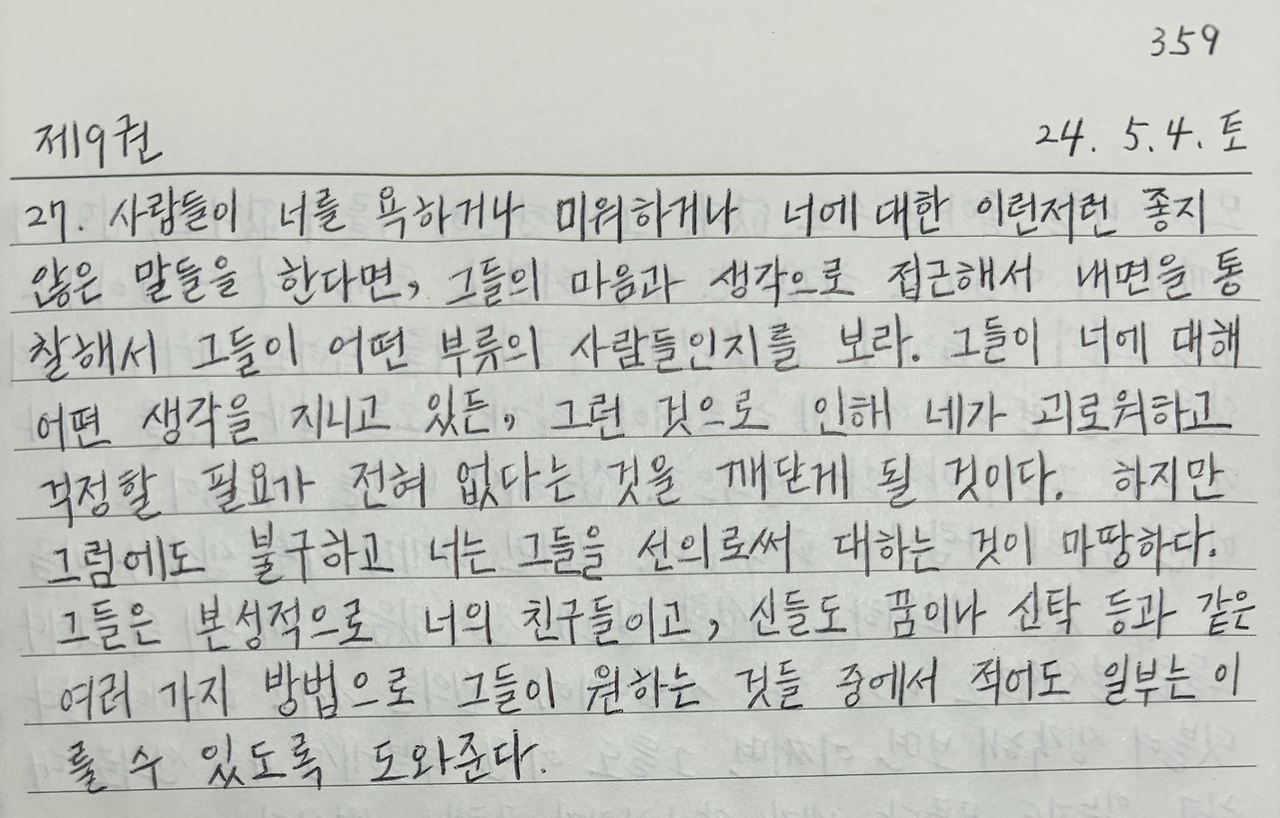 359
제9권 24. 5. 4. 토
27. 사람들이 너를 욕하거나 미워하거나 너에 대한 이런저런 좋지
않은 말들을 한다면, 그들의 마음과 생각으로 접근해서 내면을 통
찰해서 그들이 어떤 부류의 사람들인지를 보라. 그들이 너에 대해
어떤 생각을 지니고 있든, 그런 것으로 인해 네가 괴로워하고
걱정할 필요가 전혀 없다는 것을 깨닫게 될 것이다. 하지만
그럼에도 불구하고 너는 그들을 선의로써 대하는 것이 마땅하다.
그들은 본성적으로 너의 친구들이고, 신들도 꿈이나 신탁 등과 같은
여러 가지 방법으로 그들이 원하는 것들 중에서 적어도 일부는 이
룰 수 있도록 도와준다.